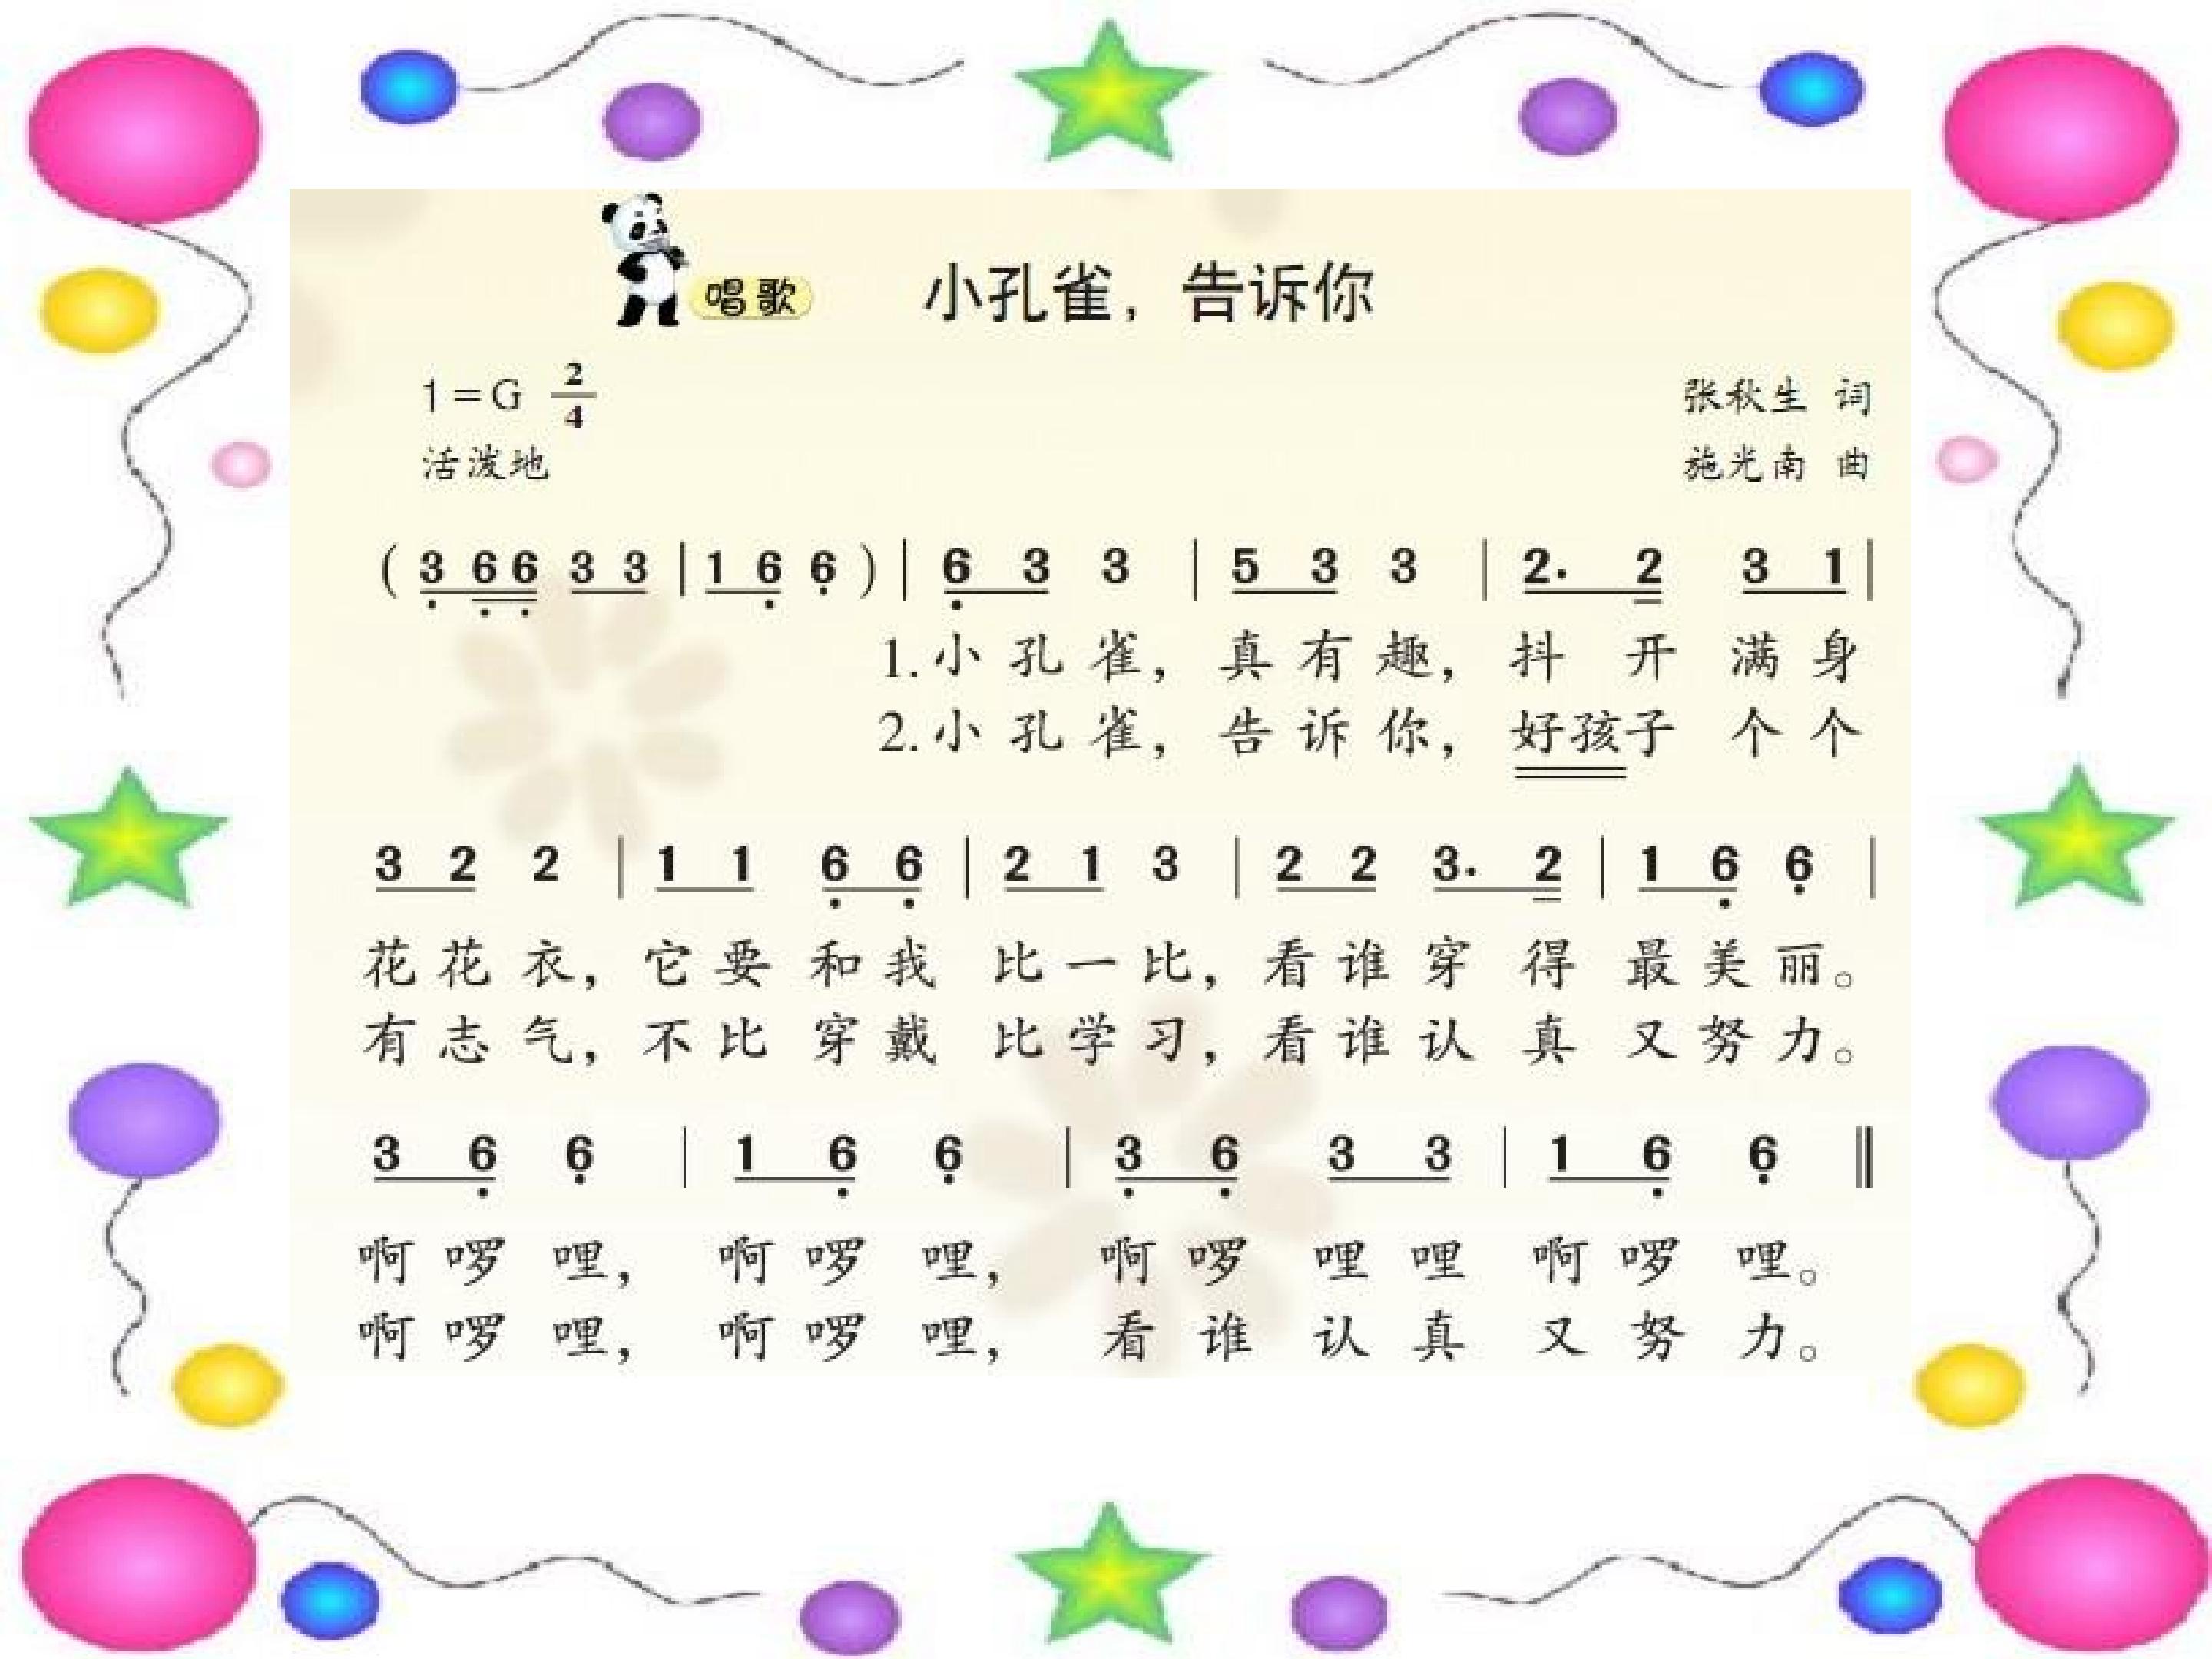 唱歌 小孔雀，告诉你
1=G 2/4 张秋生 词
活泼地 施光南 曲
( 3̣ 6̣ 6̣ 3 3 | 1 6̣ 6̣ ) | 6̣ 3 3 | 5 3 3 | 2· 2 3 1 |
1. 小孔雀， 真有趣， 抖 开 满 身
2. 小孔雀， 告诉你， 好孩子 个 个
3 2 2 | 1 1 6̣ 6̣ | 2 1 3 | 2 2 3· 2 | 1 6̣ 6̣ |
花花衣， 它要和我 比一比， 看谁穿得 最美丽。
有志气， 不比穿戴 比学习， 看谁认真 又努力。
3 6̣ 6̣ | 1 6̣ 6̣ | 3̣ 6̣ 3 3 | 1 6̣ 6̣ ‖
啊啰哩， 啊啰哩， 啊啰哩哩 啊啰哩。
啊啰哩， 啊啰哩， 看谁认真 又努力。